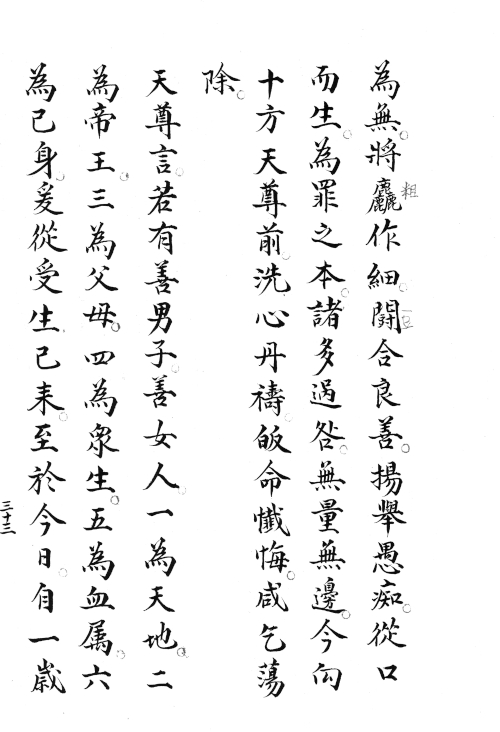 為無。將麤作細。鬪合良善。揚舉愚痴。從口
粗
而生。為罪之本。諸多過咎。無量無邊。今向
十方天尊前。洗心丹禱。皈命懺悔。咸乞蕩
除。
天尊言。若有善男子。善女人。一為天地。二
為帝王。三為父母。四為眾生。五為血属。六
為己身。爰從受生已来。至於今日。自一歲
三十三